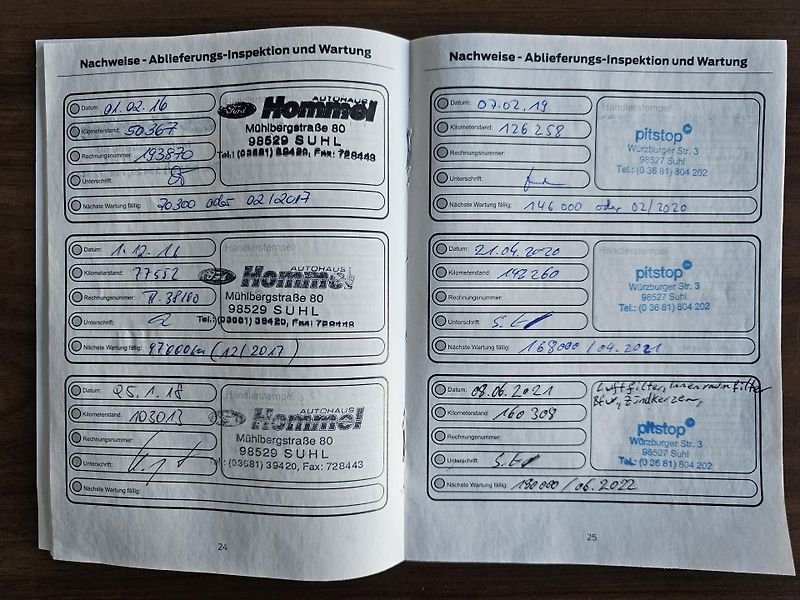 Nachweise - Ablieferungs-Inspektion und Wartung
Datum: 01.02.16
Kilometerstand: 50367
Rechnungsnummer: 193870
Unterschrift:
Nächste Wartung fällig: 70300 oder 02/2017
Ford AUTOHAUS
Hommel
Mühlbergstraße 80
98529 SUHL
Tel.: (03681) 39420, Fax: 728443
Datum: 1.12.16
Kilometerstand: 77552
Rechnungsnummer:
Unterschrift:
Nächste Wartung fällig: 97000km (12/2017)
Händlerstempel
Ford AUTOHAUS
Hommel
Mühlbergstraße 80
98529 SUHL
Tel.: (03681) 39420, Fax: 728443
Datum: 25.1.18
Kilometerstand: 103013
Rechnungsnummer:
Unterschrift:
Nächste Wartung fällig:
Händlerstempel
Ford AUTOHAUS
Hommel
Mühlbergstraße 80
98529 SUHL
Tel.: (03681) 39420, Fax: 728443
24
Nachweise - Ablieferungs-Inspektion und Wartung
Datum: 07.02.19
Kilometerstand: 126258
Rechnungsnummer:
Unterschrift:
Nächste Wartung fällig: 146 000 oder 02/2020
Händlerstempel
pitstop
Würzburger Str. 3
98527 Suhl
Tel.: (0 36 81) 804 202
Datum: 21.04.2020
Kilometerstand: 142260
Rechnungsnummer:
Unterschrift:
Nächste Wartung fällig: 168000 / 04.2021
Händlerstempel
pitstop
Würzburger Str. 3
98527 Suhl
Tel.: (0 36 81) 804 202
Datum: 08.06.2021
Kilometerstand: 160 308
Rechnungsnummer:
Unterschrift:
Nächste Wartung fällig: 190000 / 06.2022
Luftfilter, Innenraumfilter
Zündkerzen,
pitstop
Würzburger Str. 3
98527 Suhl
Tel.: (0 36 81) 804 202
25